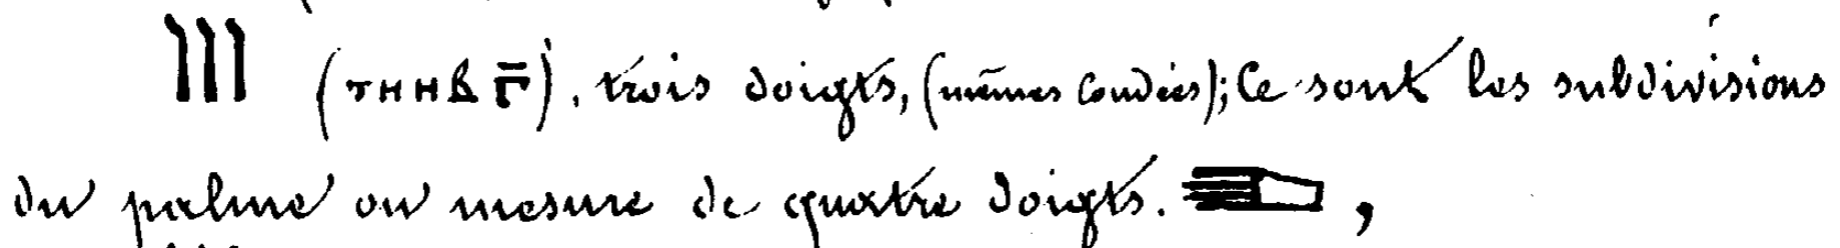 𓂭𓂭𓂭 (ⲧⲏⲏⲃ ⲅ̄), trois doigts, (mêmes Coudées); Ce sont les subdivisions
du palme ou mesure de quatre doigts. 𓂩,